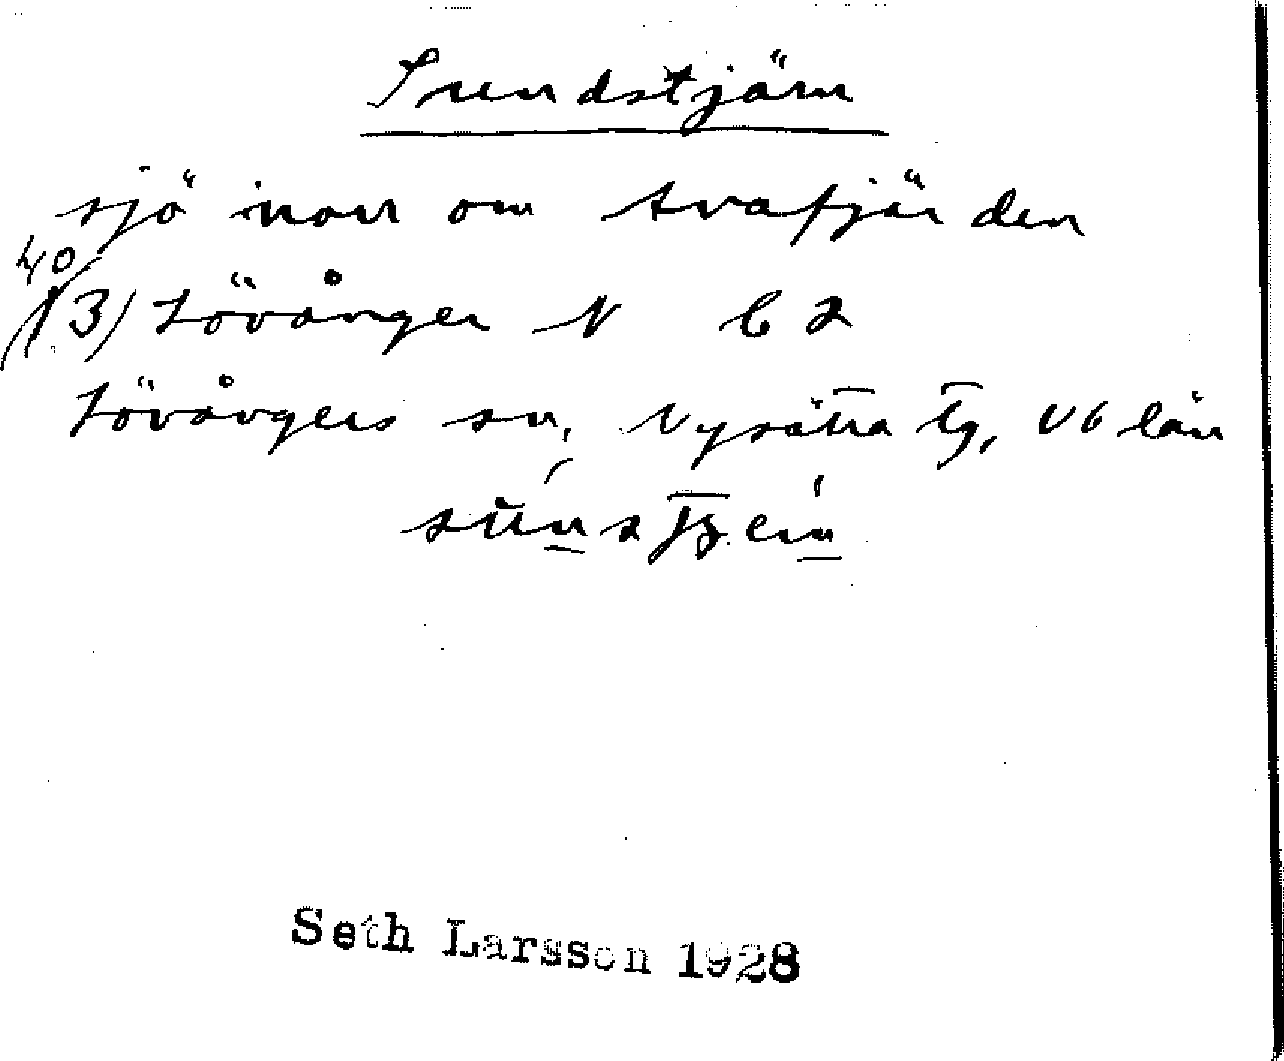 Sundstjärn
sjö norr om Avafjärden
40
(3) Lövånger N C 2
Lövångers sn, Nysätra tg, Vb län
Seth Larsson 1928